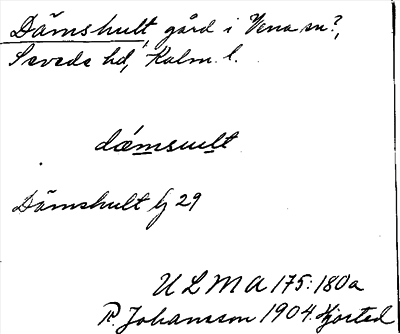 Dämshult, gård i Vena sn?,
Sevede hd, Kalm. l.
dǽmsult
Dämshult lj 29
ULMA 175:180a
R. Johansson 1904. Hjorted